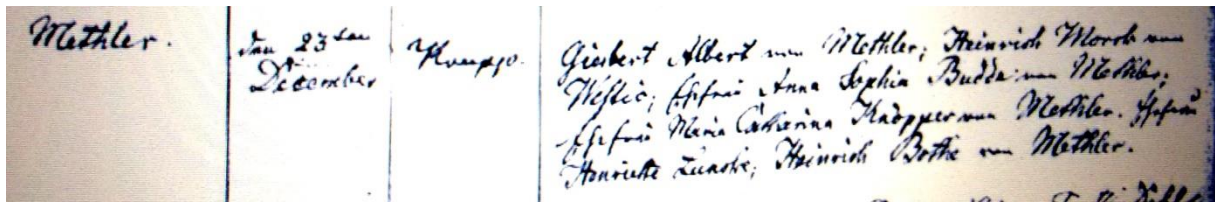 Methler.
den 23ten
December
Giesbert Albert von Methler; Heinrich Morck von
Westic; Ehefrau Anna Sophia Budde von Methler;
Ehefrau Maria Catharina Knöpper von Methler. Ehefrau
Henriette Luncke; Heinrich Bothe von Methler.